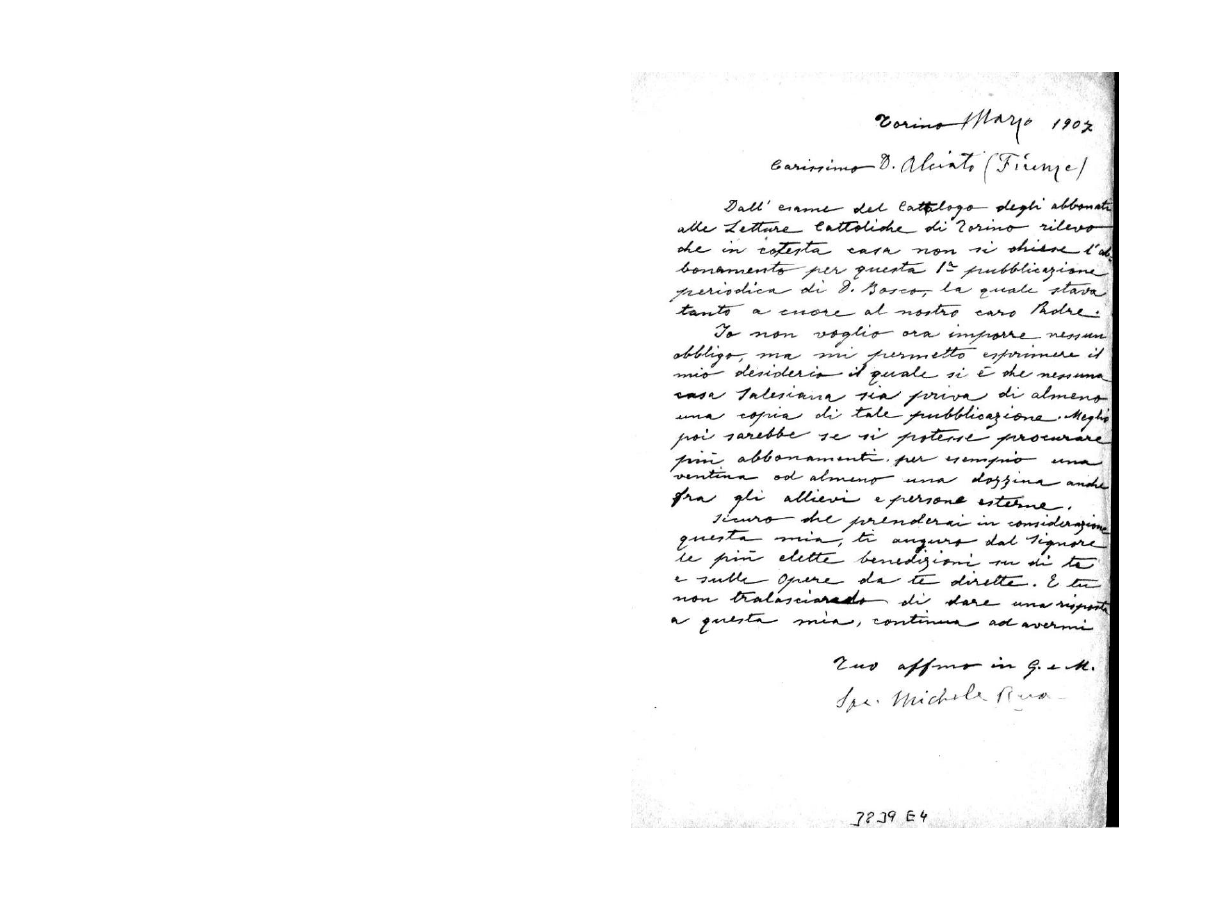 Torino Marzo 1907
Carissimo D. Alciati (Firenze)
Dall' esame del Catalogo degli abbonati
alle Letture Cattoliche di Torino rilevo
che in cotesta casa non si chiese l'ab-
bonamento per questa 1ª pubblicazione
periodica di D. Bosco, la quale stava
tanto a cuore al nostro caro Padre.
Io non voglio ora imporre nessun
obbligo, ma mi permetto esprimere il
mio desiderio il quale si è che nessuna
casa Salesiana sia priva di almeno
una copia di tale pubblicazione. Meglio
poi sarebbe se si potesse procurare
più abbonamenti. per esempio una
ventina od almeno una dozzina anche
fra gli allievi e persone esterne.
Sicuro che prenderai in considerazione
questa mia, ti auguro dal Signore
le più elette benedizioni su di te
e sulle Opere da te dirette. E tu
non tralasciando di dare una risposta
a questa mia, continua ad avermi
Tuo affmo in G. e M.
Sac. Michele Rua
3839 E4